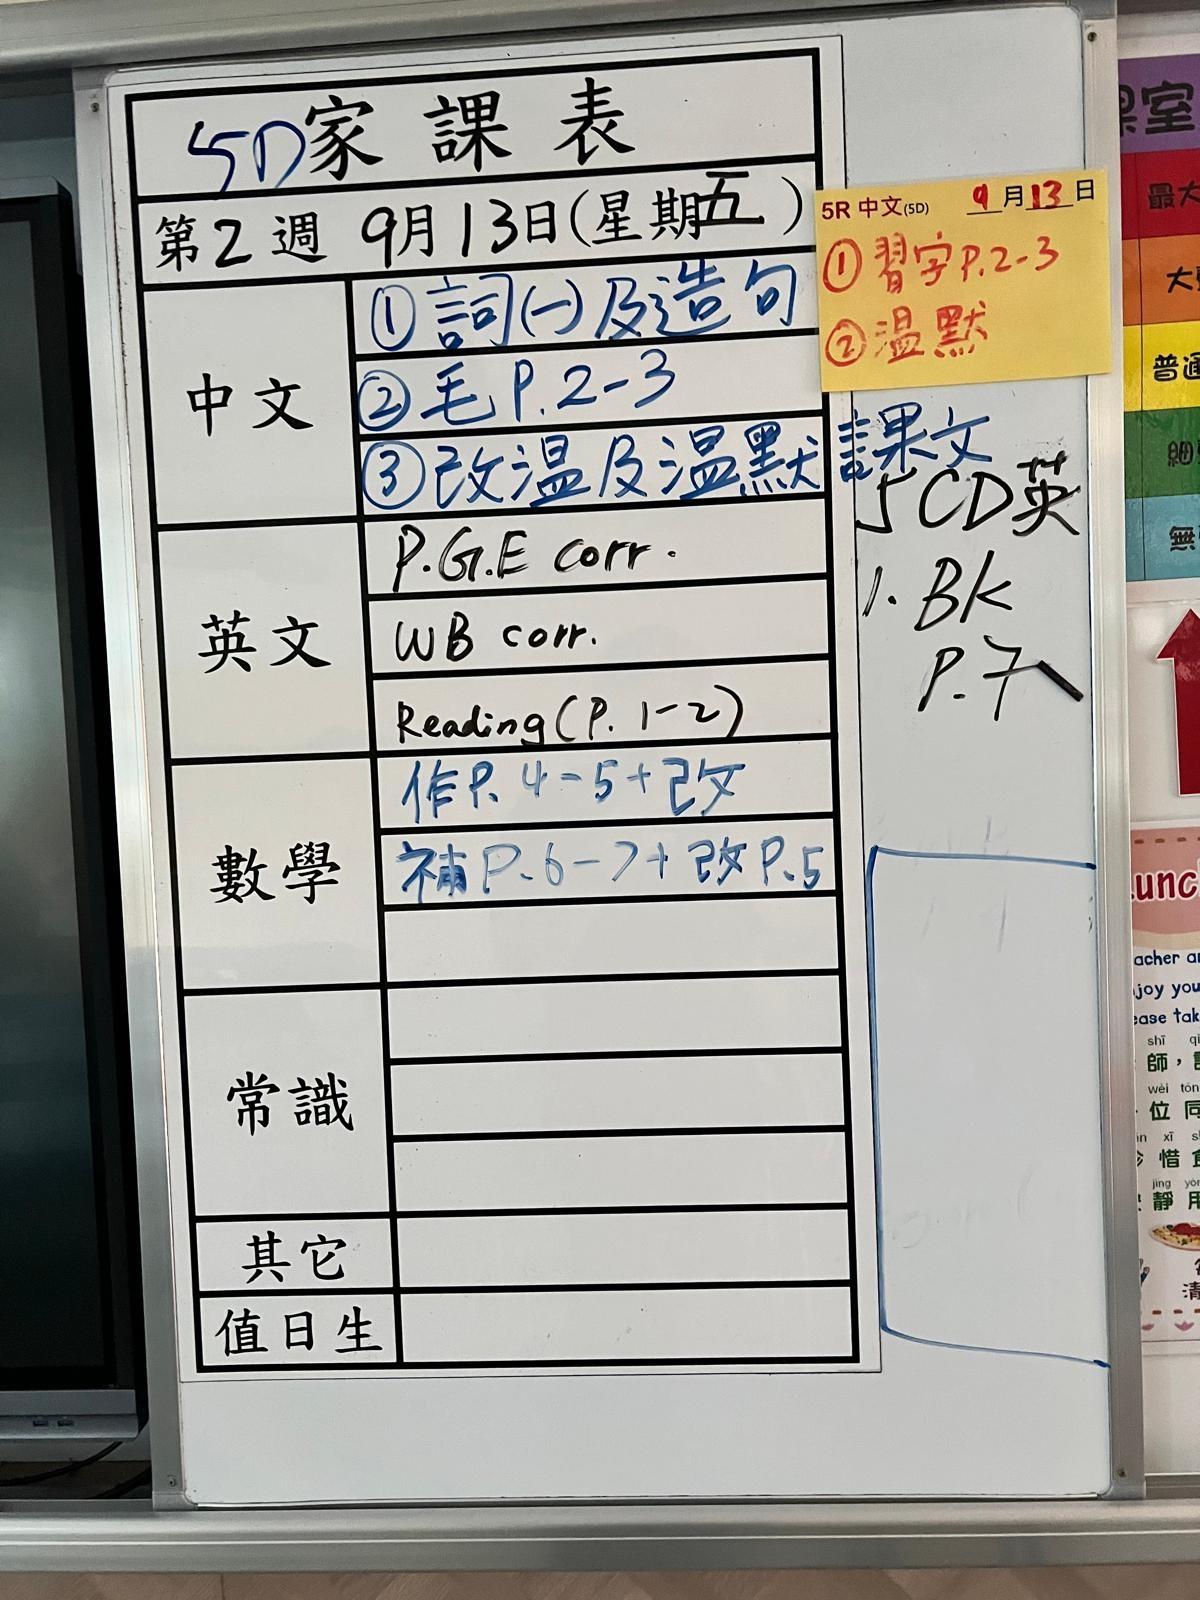 5D家課表
第2週 9月13日(星期五)
中文
①詞(一)及造句
②毛P.2-3
③改溫及溫默課文
英文
P.G.E corr.
WB corr.
Reading (P. 1-2)
數學
作P. 4-5+改
補P.6-7+改P.5
常識
其它
值日生
5R 中文(5D) 9月13日
①習字P.2-3
②溫默
5CD英
1. BK
P.7
課室
最大
大
普通
細
無
Lunc
acher a
njoy you
ease tak
shī
師，
wèi tón
位同
xī
惜
jìng yòn
靜用
清